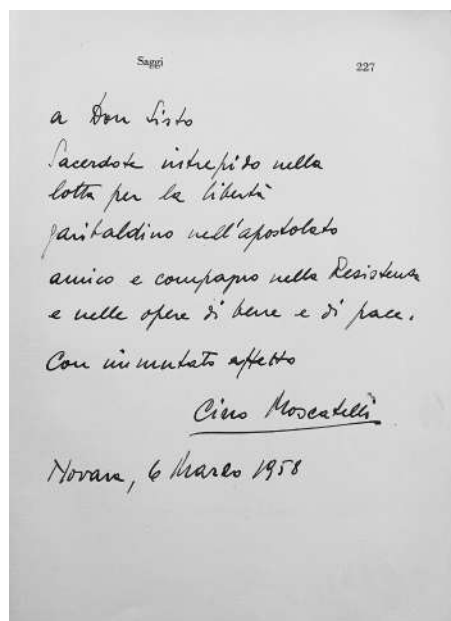 Saggi 227
a Don Sisto
Sacerdote intrepido nella
lotta per la libertà
garibaldino nell'apostolato
amico e compagno nella Resistenza
e nelle opere di bene e di pace.
Con immutato affetto
Cino Moscatelli
Novara, 6 Marzo 1958